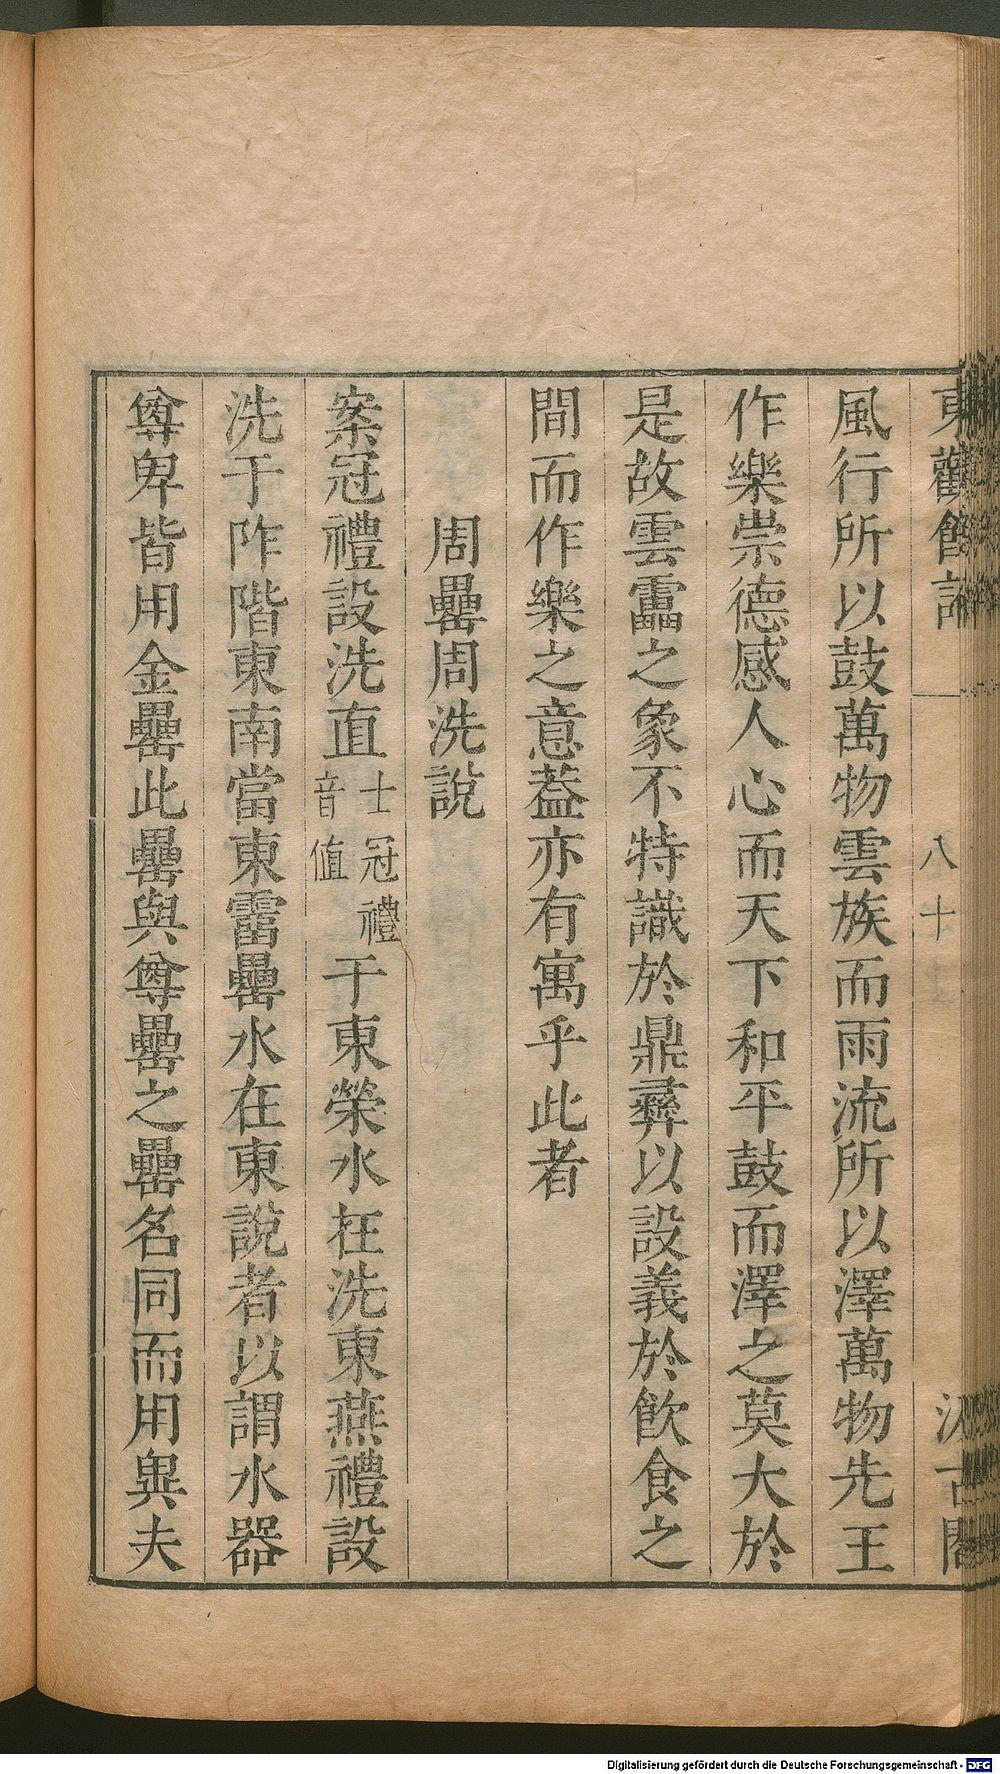 東觀餘論
八十
汲古閣
風行所以鼓萬物雲族而雨流所以澤萬物先王
作樂崇德感人心而天下和平鼓而澤之莫大於
是故雲靁之象不特識於鼎彝以設義於飮食之
間而作樂之意葢亦有寓乎此者
周罍周洗說
案冠禮設洗直士冠禮音値于東榮水在洗東燕禮設
洗于阼階東南當東霤罍水在東說者以謂水器
尊卑皆用金罍此罍與尊罍之罍名同而用異夫
Digitalisierung gefördert durch die Deutsche Forschungsgemeinschaft - DFG